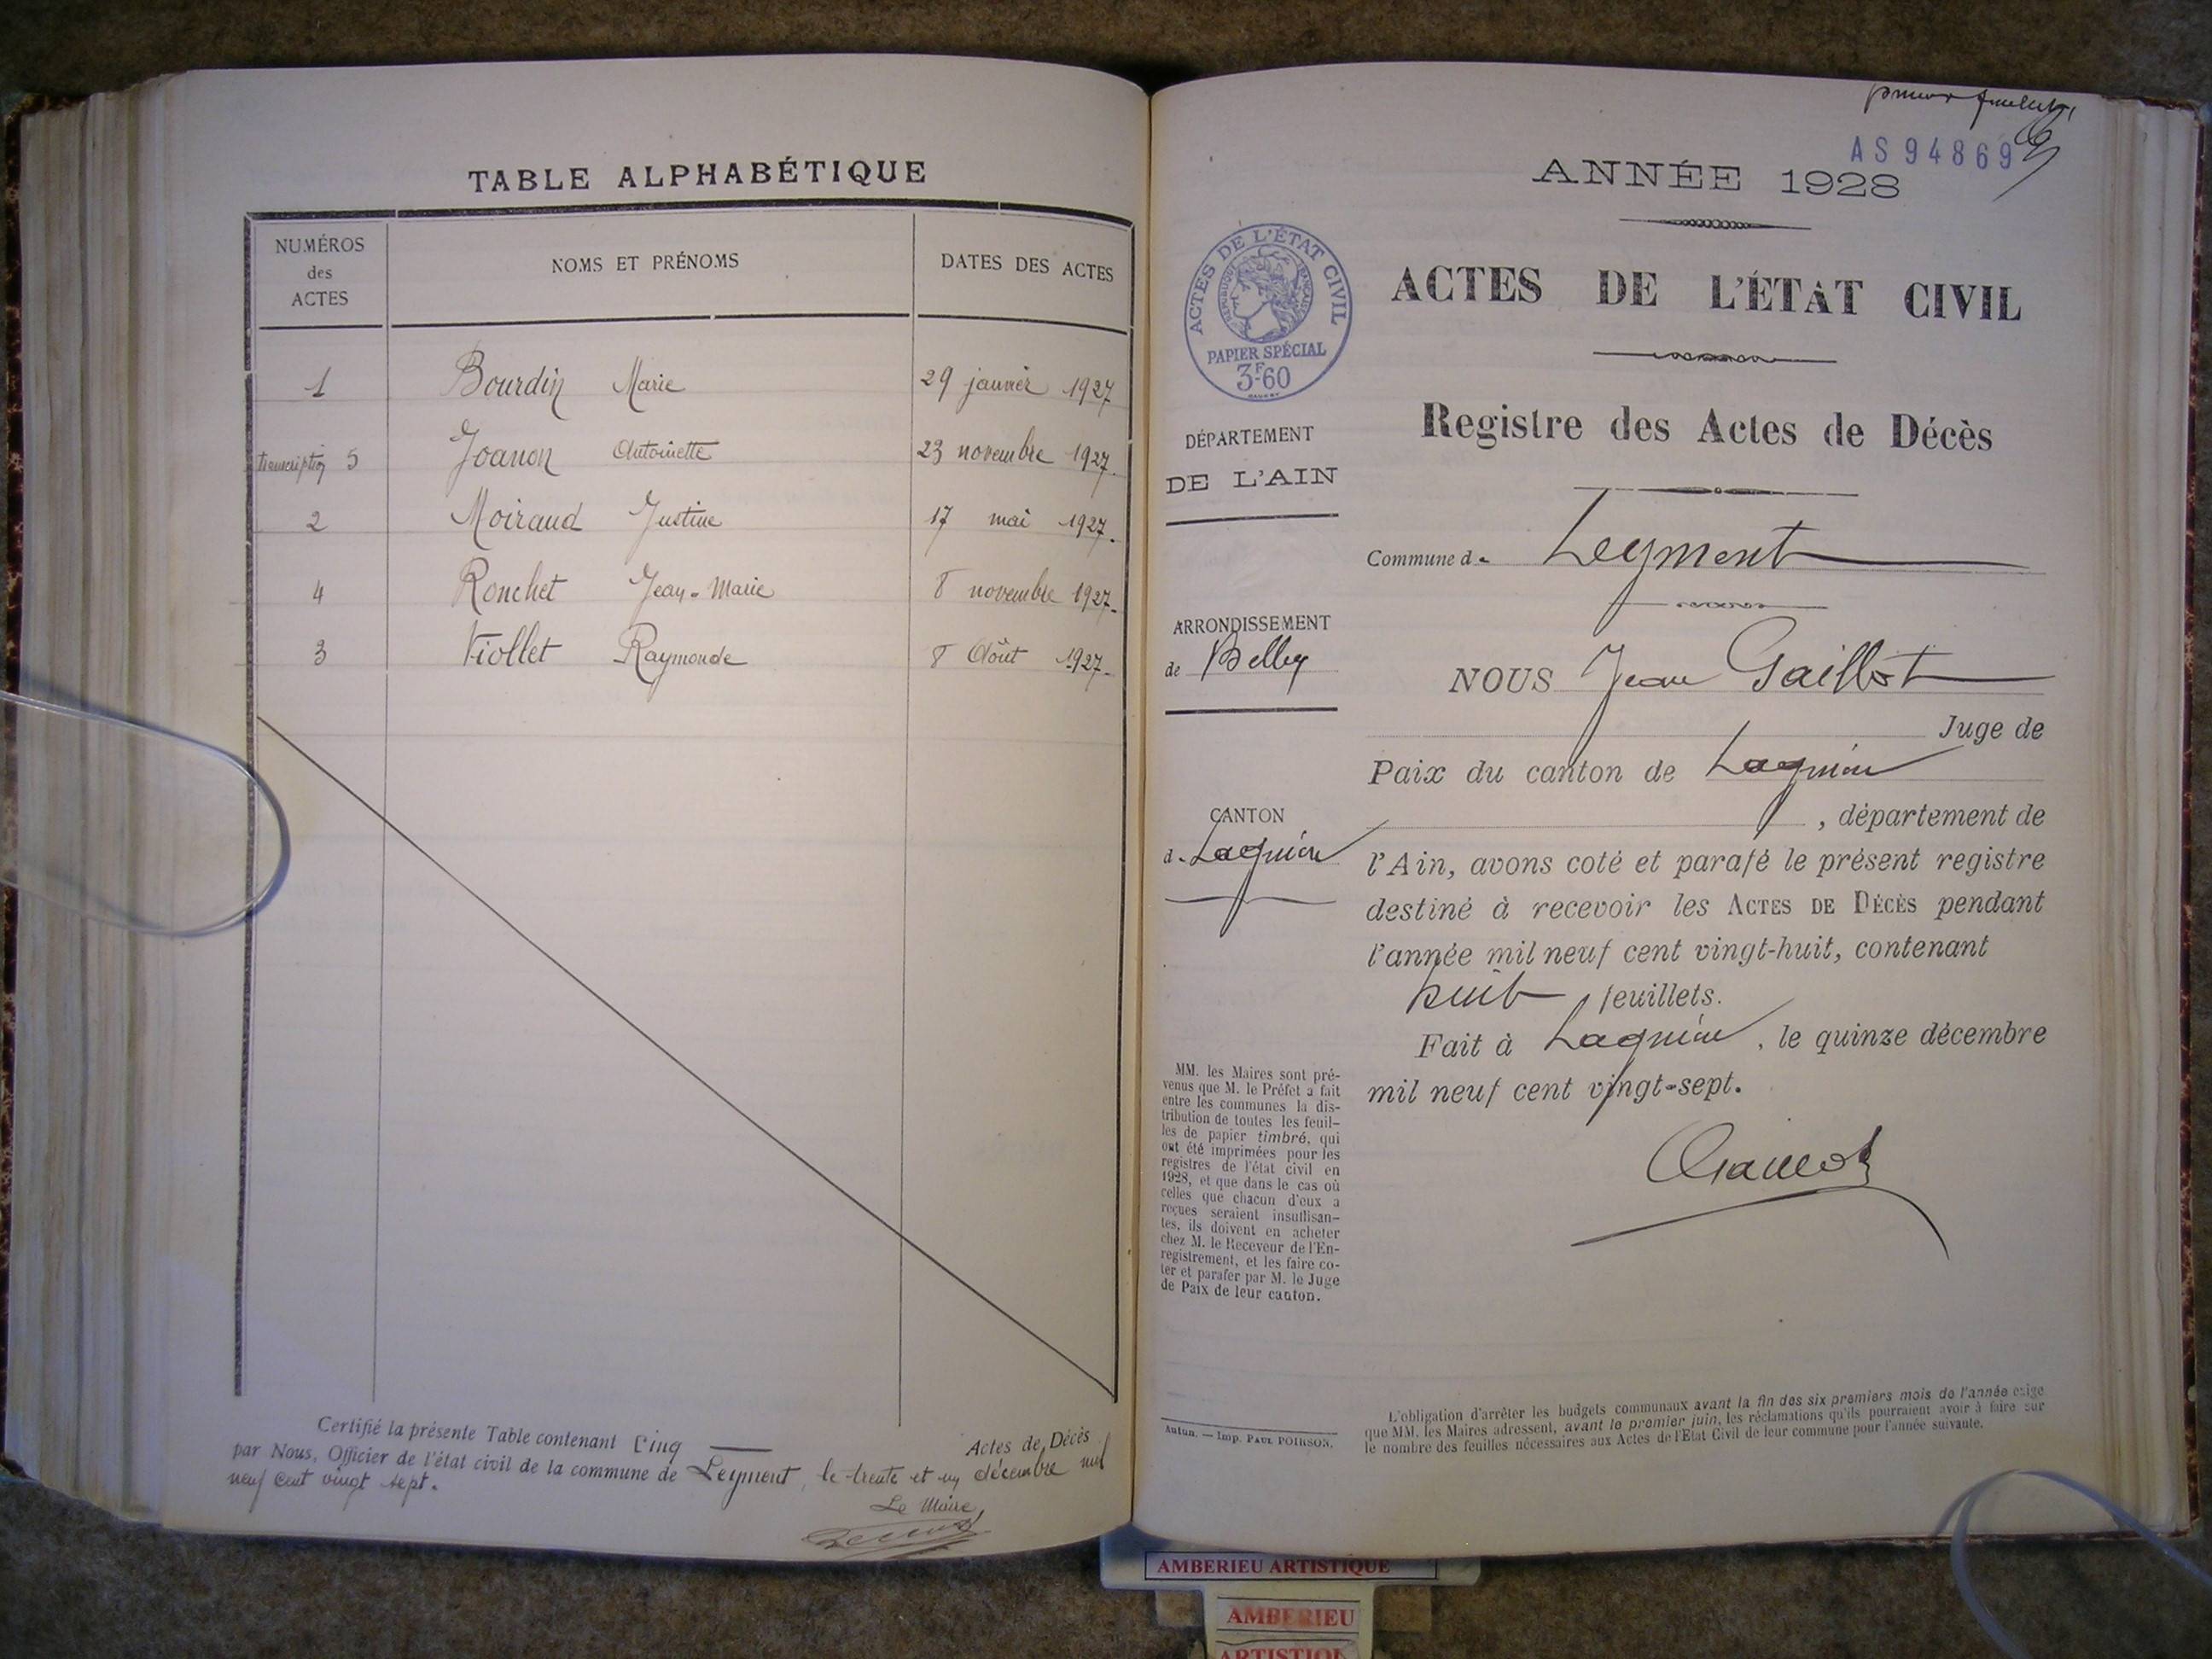 TABLE ALPHABÉTIQUE
NUMÉROS
des
ACTES
NOMS ET PRÉNOMS
DATES DES ACTES
1 Bourdin Marie 29 janvier 1927
transcription 5 Joanon Antoinette 23 novembre 1927.
2 Moiraud Justine 17 mai 1927.
4 Ronchet Jean-Marie 8 novembre 1927.
3 Viollet Raymonde 8 Août 1927.
Certifié la présente Table contenant Cinq Actes de Décès
par Nous, Officier de l'état civil de la commune de Leyment, le trente et un décembre mil
neuf cent vingt sept.
Le Maire,
premier feuillet
AS 94869
ANNÉE 1928
ACTES DE L'ÉTAT CIVIL
RÉPUBLIQUE FRANÇAISE
PAPIER SPÉCIAL
3F-60
ACTES DE L'ÉTAT CIVIL
Registre des Actes de Décès
DÉPARTEMENT
DE L'AIN
Commune de Leyment
ARRONDISSEMENT
de Belley
NOUS Jean Gaillot
Juge de
Paix du canton de Lagnieu
, département de
CANTON
de Lagnieu
l'Ain, avons coté et parafé le présent registre
destiné à recevoir les ACTES DE DÉCÈS pendant
l'année mil neuf cent vingt-huit, contenant
huit feuillets.
Fait à Lagnieu, le quinze décembre
mil neuf cent vingt-sept.
MM. les Maires sont pré-
venus que M. le Préfet a fait
entre les communes la dis-
tribution de toutes les feuil-
les de papier timbré, qui
ont été imprimées pour les
registres de l'état civil en
1928, et que dans le cas où
celles que chacun d'eux a
reçues seraient insuffisan-
tes, ils doivent en acheter
chez M. le Receveur de l'En-
registrement, et les faire co-
ter et parafer par M. le Juge
de Paix de leur canton.
Autun. — Imp. PAUL POIRSON.
L'obligation d'arrêter les budgets communaux avant la fin des six premiers mois de l'année exige
que MM. les Maires adressent, avant le premier juin, les réclamations qu'ils pourraient avoir à faire sur
le nombre des feuilles nécessaires aux Actes de l'Etat Civil de leur commune pour l'année suivante.
AMBERIEU ARTISTIQUE
AMBERIEU
ARTISTIQU